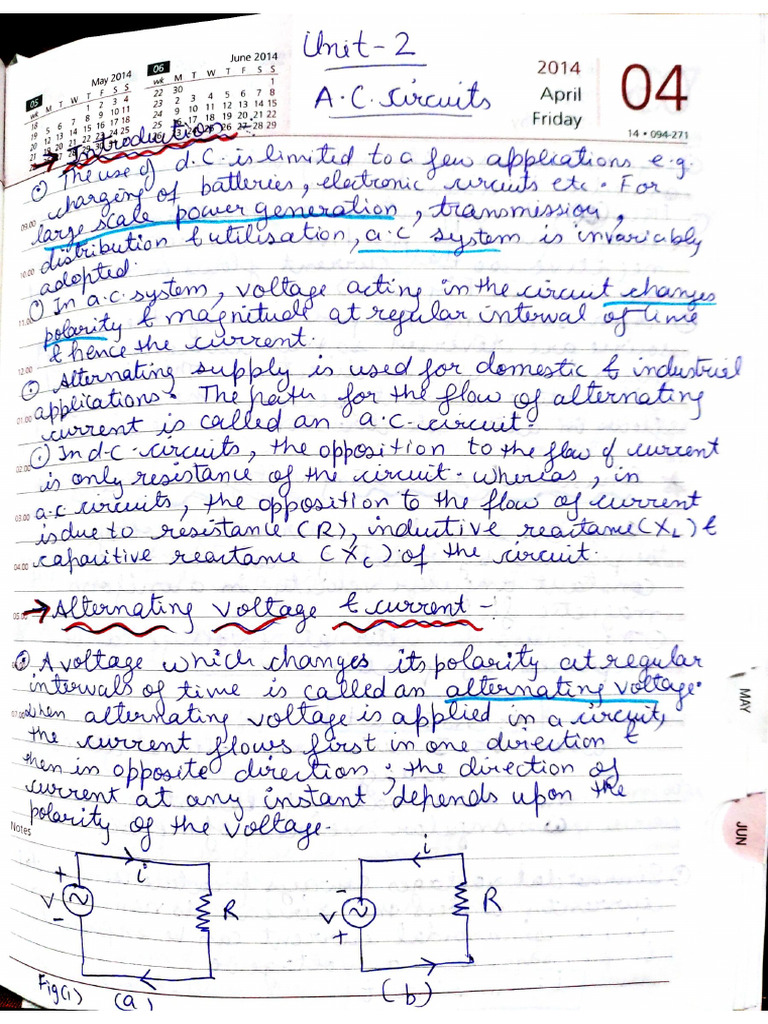 Unit-2
A.C. Circuits
May 2014
June 2014
05
06
wk M T W T F S S
2014
April
Friday
04
14 • 094-271
→ Introduction :-
The use of d.C. is limited to a few applications e.g.
charging of batteries, electronic circuits etc. For
large scale power generation, transmission,
distribution & utilisation, a.c system is invariably
adopted.
In a.c. system, voltage acting in the circuit changes
polarity & magnitude at regular interval of time
& hence the current.
Alternating supply is used for domestic & industrial
applications. The path for the flow of alternating
current is called an a.c. circuit.
In d-c circuits, the opposition to the flow of current
is only resistance of the circuit. Whereas, in
a.c circuits, the opposition to the flow of current
is due to resistance (R), inductive reactance (XL) &
capacitive reactance (Xc) of the circuit.
→ Alternating Voltage & current -
A voltage which changes its polarity at regular
intervals of time is called an alternating voltage.
When alternating voltage is applied in a circuit,
the current flows first in one direction &
then in opposite direction; the direction of
current at any instant depends upon the
polarity of the voltage.
09.00
10.00
11.00
12.00
01.00
02.00
03.00
04.00
05.00
07.00
Notes
MAY
JUN
+ V - i R
- V + i R
Fig(1) (a) (b)